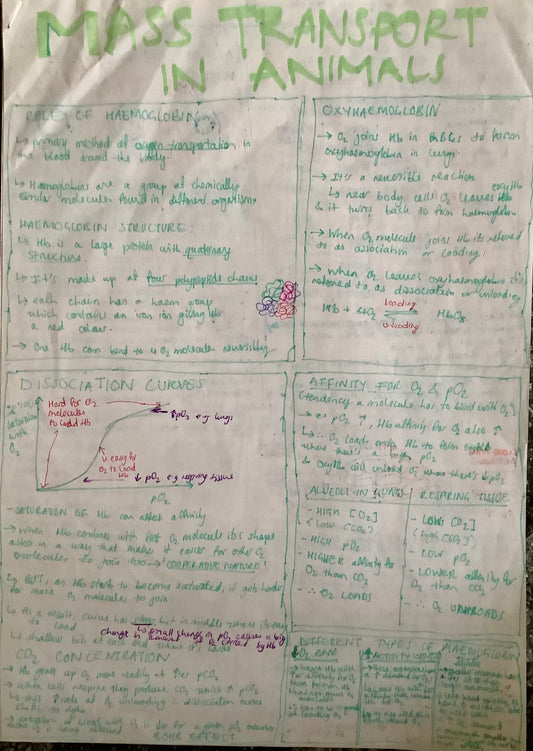 MASS TRANSPORT
IN ANIMALS
ROLE OF HAEMOGLOBIN
↳ primary method of oxygen transportation in
the blood around the body.
↳ Haemoglobins are a group of chemically
similar molecules found in different organisms
HAEMOGLOBIN STRUCTURE:
↳ Hb is a large protein with quaternary
structure.
↳ It's made up of four polypeptide chains
↳ each chain has a haem group
which contains an iron ion giving Hb
a red colour.
→ One Hb can bind to 4 O2 molecules reversibly
OXYHAEMOGLOBIN
→ O2 joins Hb in RBCs to form
oxyhaemoglobin in lungs.
→ It's a reversible reaction
↳ near body cells O2 leaves oxyHb
& it turns back to form haemoglobin
→ When O2 molecule joins Hb its referred
to as association or loading
→ When O2 leaves oxyhaemoglobin its
referred to as dissociation or unloading
Hb + 4O2 loading unloading HbO8
DISSOCIATION CURVES
% saturation with O2
Hard for O2
molecules
to load Hb
↑pO2 e.g lungs
easy for
O2 to load
Hb
↓ pO2 e.g respiring tissues
pO2
- SATURATION of Hb can affect affinity
→ When Hb combines with first O2 molecule its shape
alters in a way that makes it easier for other O2
molecules to join too → 'COOPERATIVE NATURE'
↳ BUT, as Hb starts to become saturated, it gets harder
for more O2 molecules to join
↳ As a result, curve has steep bit in middle where its easy
to load
↳ small change in pO2 causes a big
change in amount of O2 carried by Hb
↳ shallow bits at each end where it's harder
CO2 CONCENTRATION
→ Hb gives up O2 more readily at ↑er pCO2
→ When cells respire they produce CO2 which ↑ pCO2
↳ this ↑ rate of O2 unloading ∴ dissociation curve
shifts to right
→ saturation of blood with O2 is lower for a given pO2 meaning
more O2 is being released
BOHR EFFECT
AFFINITY FOR O2 & pO2
(tendency a molecule has to bind with O2)
→ as pO2 ↑, Hb affinity for O2 also ↑
↳ ∴ O2 loads onto Hb to form
where there's a high pO2
& oxyHb will unload O2 where there's ↓pO2
ALVEOLI IN LUNGS
- HIGH [O2]
(low [CO2])
- HIGH pO2
- HIGHER affinity for
O2 than CO2
- ∴ O2 LOADS
RESPIRING TISSUE
- LOW [O2]
(high [CO2])
- LOW pO2
- LOWER affinity for
O2 than CO2
- ∴ O2 UNLOADS
DIFFERENT TYPES OF HAEMOGLOBIN
↓ O2 ENV
ACTIVITY LEVELS
SIZE